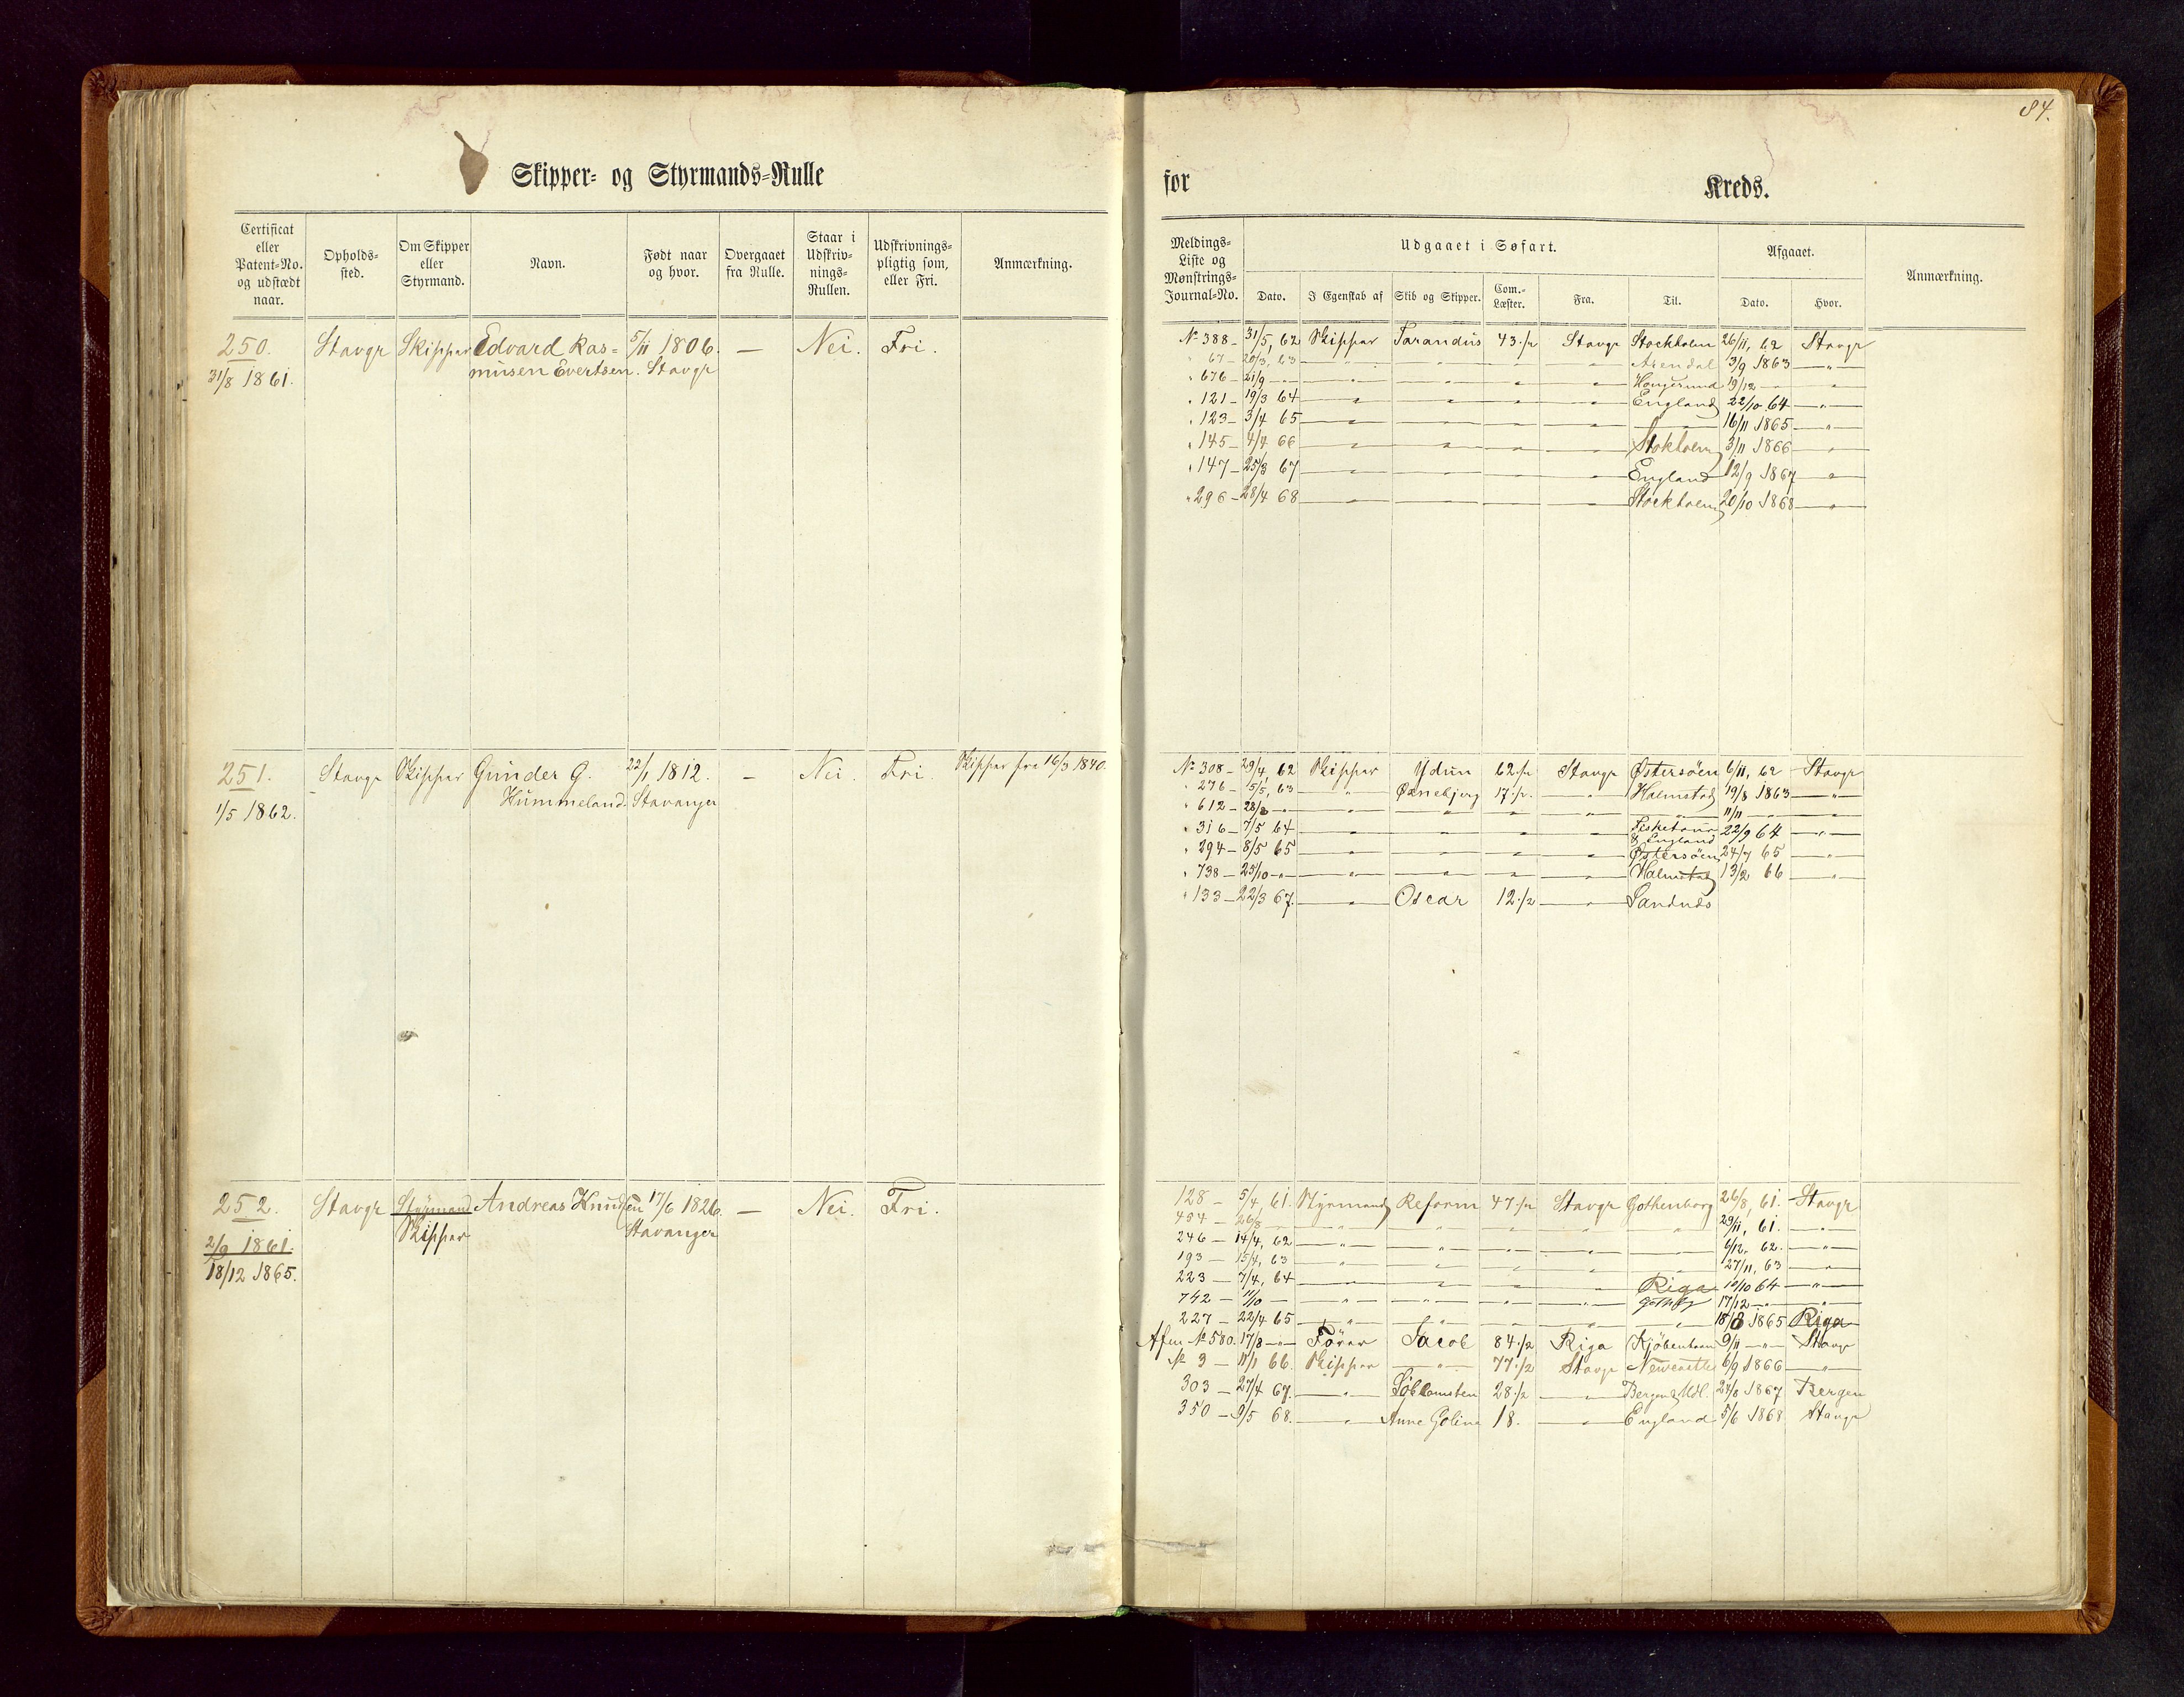 84.
Skipper- og Styrmands-Rulle for Kreds.
Certificat eller Patent-No. og udstædt naar.
Opholds-sted.
Om Skipper eller Styrmand.
Navn.
Født naar og hvor.
Overgaaet fra Rulle.
Staar i Udskriv-nings-Rullen.
Udskrivnings-pligtig som, eller Fri.
Anmærkning.
Meldings-Liste og Mønstrings-Journal-No.
Udgaaet i Søfart.
Dato.
I Egenskab af
Skib og Skipper.
Com.-Læster.
Fra.
Til.
Afgaaet.
Dato.
Hvor.
Anmærkning.
250. Stavgr Skipper Edvard Ras= 5/11 1806. — Nei. Fri.
31/8 1861. musen Evertsen. Stavgr
No 388 — 31/5, 62 Skipper Tarandus 43 1/2 Stavgr Stockholm 26/11, 62 Stavgr
" 67 — 20/3, 63 " " " " Arendal 3/9 1863 — " —
" 676 — 21/9 — " " " " " 19/12 — "
" 121 — 19/3 64 " " " " England 22/10 64 — " —
" 123 — 3/4 65 " " " " — 16/11 1865 — " —
" 145 — 4/4 66 " " " " Stokholm 3/11 1866 "
" 147 — 25/3 67 " " " " England 12/9 1867 "
" 296 — 28/4 68 " " " " Stockholm 20/10 1868 — "
251. Stavgr Skipper Gunder G. 22/1 1812. — Nei. Fri Skipper fra 16/3 1840.
1/5 1862. Hummeland. Stavanger
No 308 — 29/4, 62 Skipper Ydun 62 1/2 Stavgr Østersöen 6/11, 62 Stavgr
" 276 — 5/5, 63 " Øxnebjerg 17 1/2 " Halmstad 19/8 1863 — " —
" 612 — 28/8 — " " " " " " 11/11 — "
" 316 — 7/5 64 " " " " 22/9 64 — " —
& England
" 294 — 8/5 65 " " " " Østersöen 24/7 65 — " —
" 738 — 25/10 — " " " " " Halmstad 13/2 66 "
" 133 — 22/3 67. " Oscar 12 1/2 "
252. Stavgr Styrmand Andreas Knudsen 17/6 1826. — Nei. Fri.
Skipper Stavanger
2/9 1861.
18/12 1865.
128 — 5/4, 61. Styrmand Reform 47 1/2 Stavgr Gothenborg 26/8, 61. Stavgr
454 — 26/8 — " " " " " 29/11, 61. — " —
246 — 14/4, 62 — " — " " " 6/12, 62. — " —
193 — 15/4, 63 — " — " " " 27/11, 63 "
223 — 7/4, 64 " " " " Riga 10/10 64 — " —
742 — 11/10 — " " " " 17/12 — " — "
227 — 22/4 65 " " " " " 18/8 1865 Riga
No 580. 17/8 — " — Förer Jacob 84 1/2 Riga Kjöbenhavn 9/11 — " — Stavgr
No 9 — 11/1 66. Skipper — " — 77 1/2 Stavgr Newcastle 6/9 1866 — " —
303 — 27/4 67. — " 28 1/2 Bergen 27/8 1867 Bergen
350 — 9/5 68. — " Anne Goline 18. England 5/6 1868 Stavgr